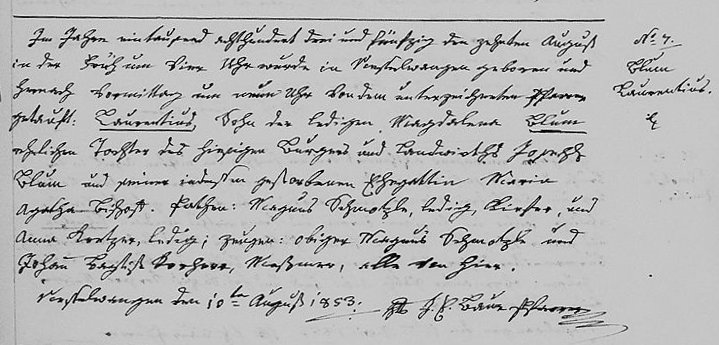 Im Jahre eintausend achthundert drei und fünfzig den zehnten August
in der Früh um vier Uhr wurde in geboren und
hernach Vormittag um neun Uhr von dem unterzeichneten Pfarrer
getauft: Laurentius, Sohn der ledigen Magdalena Blum
ehelichen Tochter des hiesigen Burgers und Landwirths Joseph
Blum und seiner indessen gestorbenen Ehegattin Maria
Agatha Bischoff. Pathen: Magnus Schmotzle, ledig, Küfer, und
Anna ledig; Zeugen: obiger Magnus Schmotzle und
Johann Baptist Messmer, alle von hier.
den 10ten August 1853. J. E. Baur Pfarrer
No 7.
Blum
Laurentius.